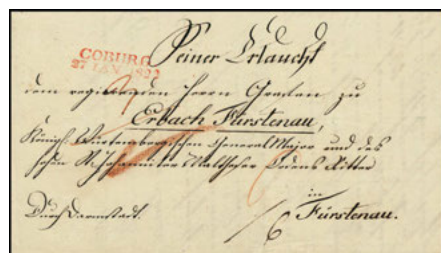 COBURG
27 JAN 1822
Seiner Erlaucht
dem regierenden Herrn Grafen zu
Erbach Fürstenau,
Königl. Würtembergischen General Major und des
hohen Maltheser Ordens Ritter
in
Durch Darmstadt.
Fürstenau.